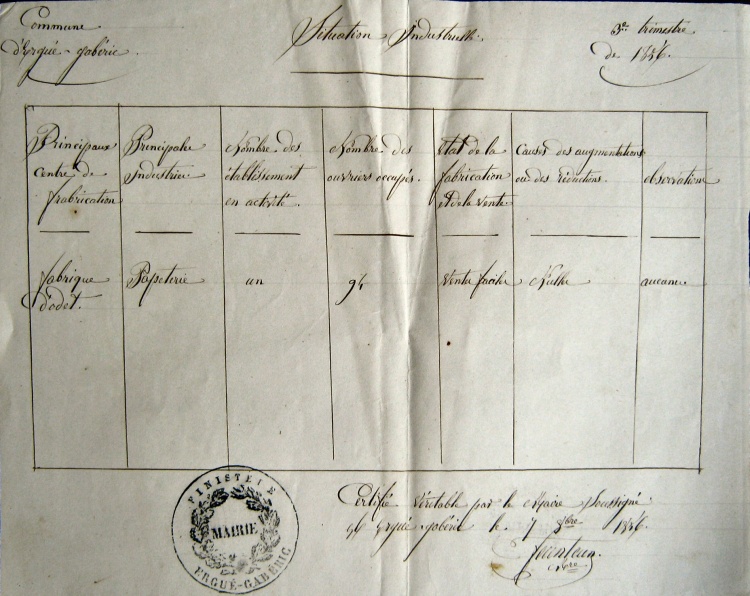 Commune
d'Ergué-gabéric
Situation Industrielle.
3e trimestre
de 1856.
Principaux
centre de
fabrication
Principale
Industrie
Nombre des
établissement
en activité.
Nombre des
ouvriers occupés.
état de la
fabrication
et de la vente
Causes des augmentations
ou des réductions.
observation
fabrique
d'odet.
Papeterie
un
94
Vente facile
Nulle
aucune.
Certifié Véritable par le Maire Soussigné
Ergué-gabéric le 7 8bre 1856.
FINISTERE
MAIRIE
ERGUÉ-GABÉRIC